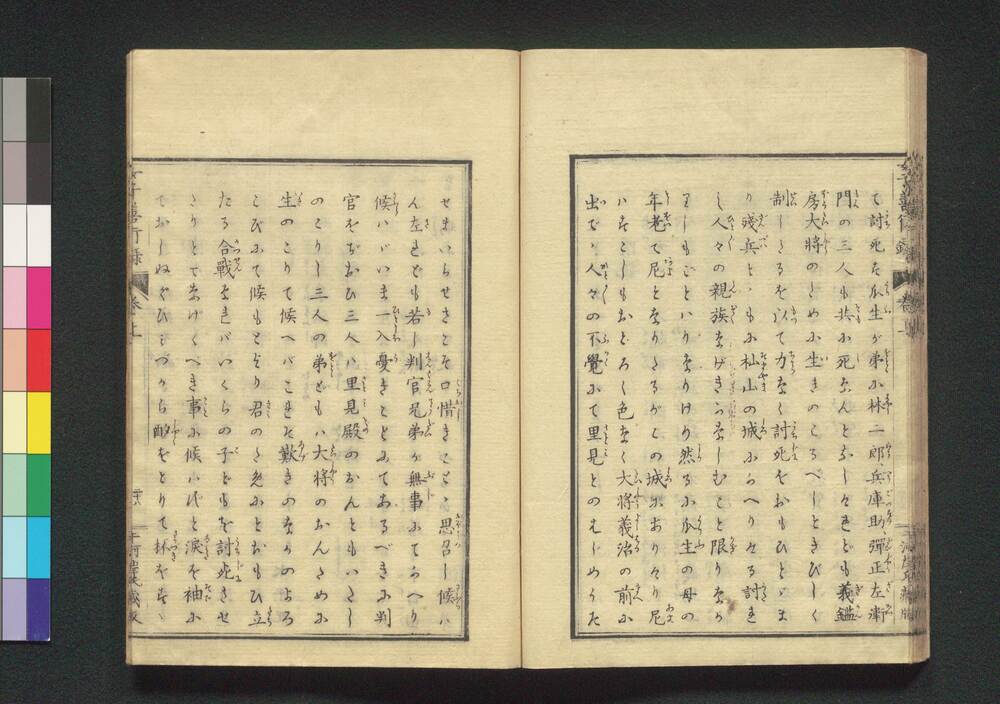 て討死す瓜生が弟に林二郎兵庫助彈正左衛
門の三人も共に死なんとなしけれども義鑑
房大将のために生きのこるべしときびしく
制しけるを以て力なく討死をおもひとゞま
り残兵とゝもに杣山の城にかへりける討き
し人々の親族なげきかなしむこと限りなか
りしもことわりなりけり然るに瓜生の母の
年老て尼となりたるがこの城にありけり尼
ハすこしもおどろく色なく大将義治の前に
出て人々の不覺にて里見とのをはじめうた
せまいらせこそ口惜きことゝ思召し候ハ
ん左れども若し判官兄弟が無事にてかへり
候ハゞいま一入憂きことにてあるべきに判
官をぢおひ三人ハ里見殿のおんともいたし
のこりし三人の弟どもハ大将のおんために
生のこりて候へバこれぞ歎きのなかのよろ
こびにて候もとより君のためにとおもひ立
たる合戰なれバいくらの子どもを討死させ
たりとてなげくべき事に候ハずと涙を袖に
ておしぬぐひみづから酌をとりて杯をすゝ
女子善行録 卷上